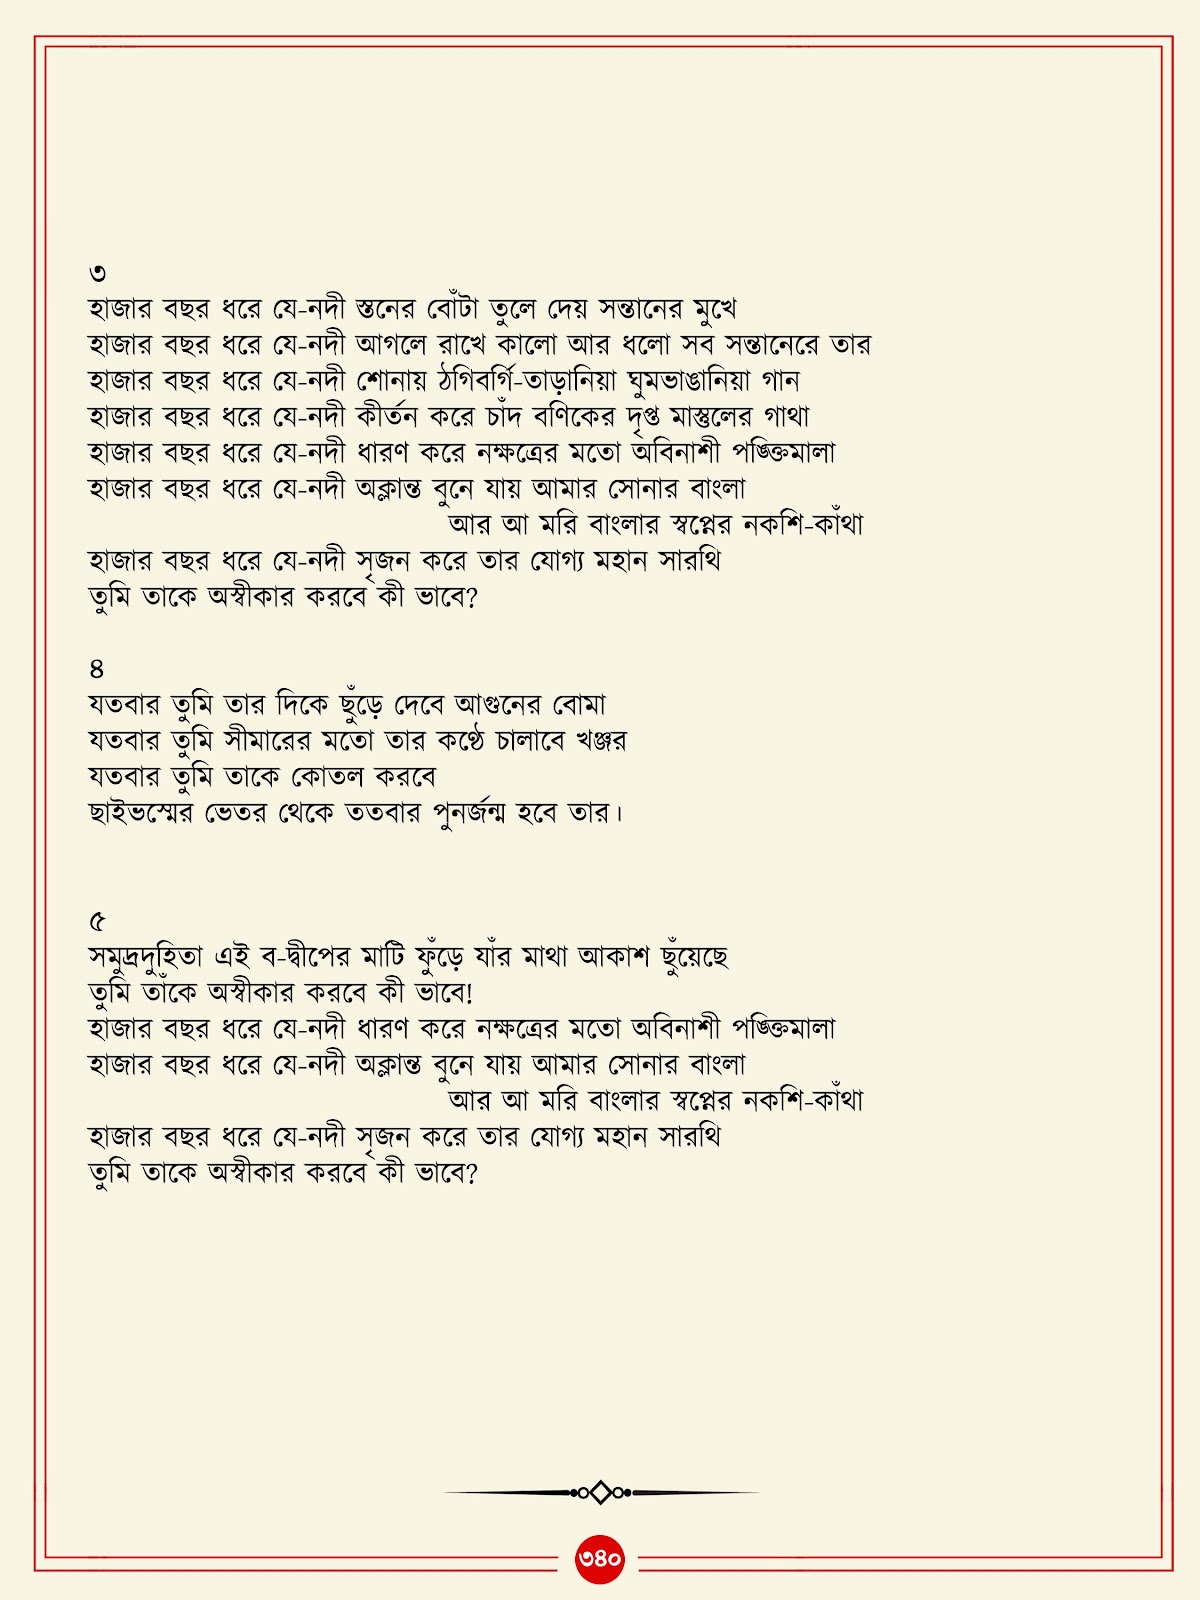 ৩
হাজার বছর ধরে যে-নদী স্তনের বোঁটা তুলে দেয় সন্তানের মুখে
হাজার বছর ধরে যে-নদী আগলে রাখে কালো আর ধলো সব সন্তানেরে তার
হাজার বছর ধরে যে-নদী শোনায় ঠগিবর্গি-তাড়ানিয়া ঘুমভাঙানিয়া গান
হাজার বছর ধরে যে-নদী কীর্তন করে চাঁদ বণিকের দৃপ্ত মাস্তুলের গাথা
হাজার বছর ধরে যে-নদী ধারণ করে নক্ষত্রের মতো অবিনাশী পঙ্ক্তিমালা
হাজার বছর ধরে যে-নদী অক্লান্ত বুনে যায় আমার সোনার বাংলা
আর আ মরি বাংলার স্বপ্নের নকশি-কাঁথা
হাজার বছর ধরে যে-নদী সৃজন করে তার যোগ্য মহান সারথি
তুমি তাকে অস্বীকার করবে কী ভাবে?
৪
যতবার তুমি তার দিকে ছুঁড়ে দেবে আগুনের বোমা
যতবার তুমি সীমারের মতো তার কণ্ঠে চালাবে খঞ্জর
যতবার তুমি তাকে কোতল করবে
ছাইভস্মের ভেতর থেকে ততবার পুনর্জন্ম হবে তার।
৫
সমুদ্রদুহিতা এই ব-দ্বীপের মাটি ফুঁড়ে যাঁর মাথা আকাশ ছুঁয়েছে
তুমি তাঁকে অস্বীকার করবে কী ভাবে!
হাজার বছর ধরে যে-নদী ধারণ করে নক্ষত্রের মতো অবিনাশী পঙ্ক্তিমালা
হাজার বছর ধরে যে-নদী অক্লান্ত বুনে যায় আমার সোনার বাংলা
আর আ মরি বাংলার স্বপ্নের নকশি-কাঁথা
হাজার বছর ধরে যে-নদী সৃজন করে তার যোগ্য মহান সারথি
তুমি তাকে অস্বীকার করবে কী ভাবে?
৩৪০